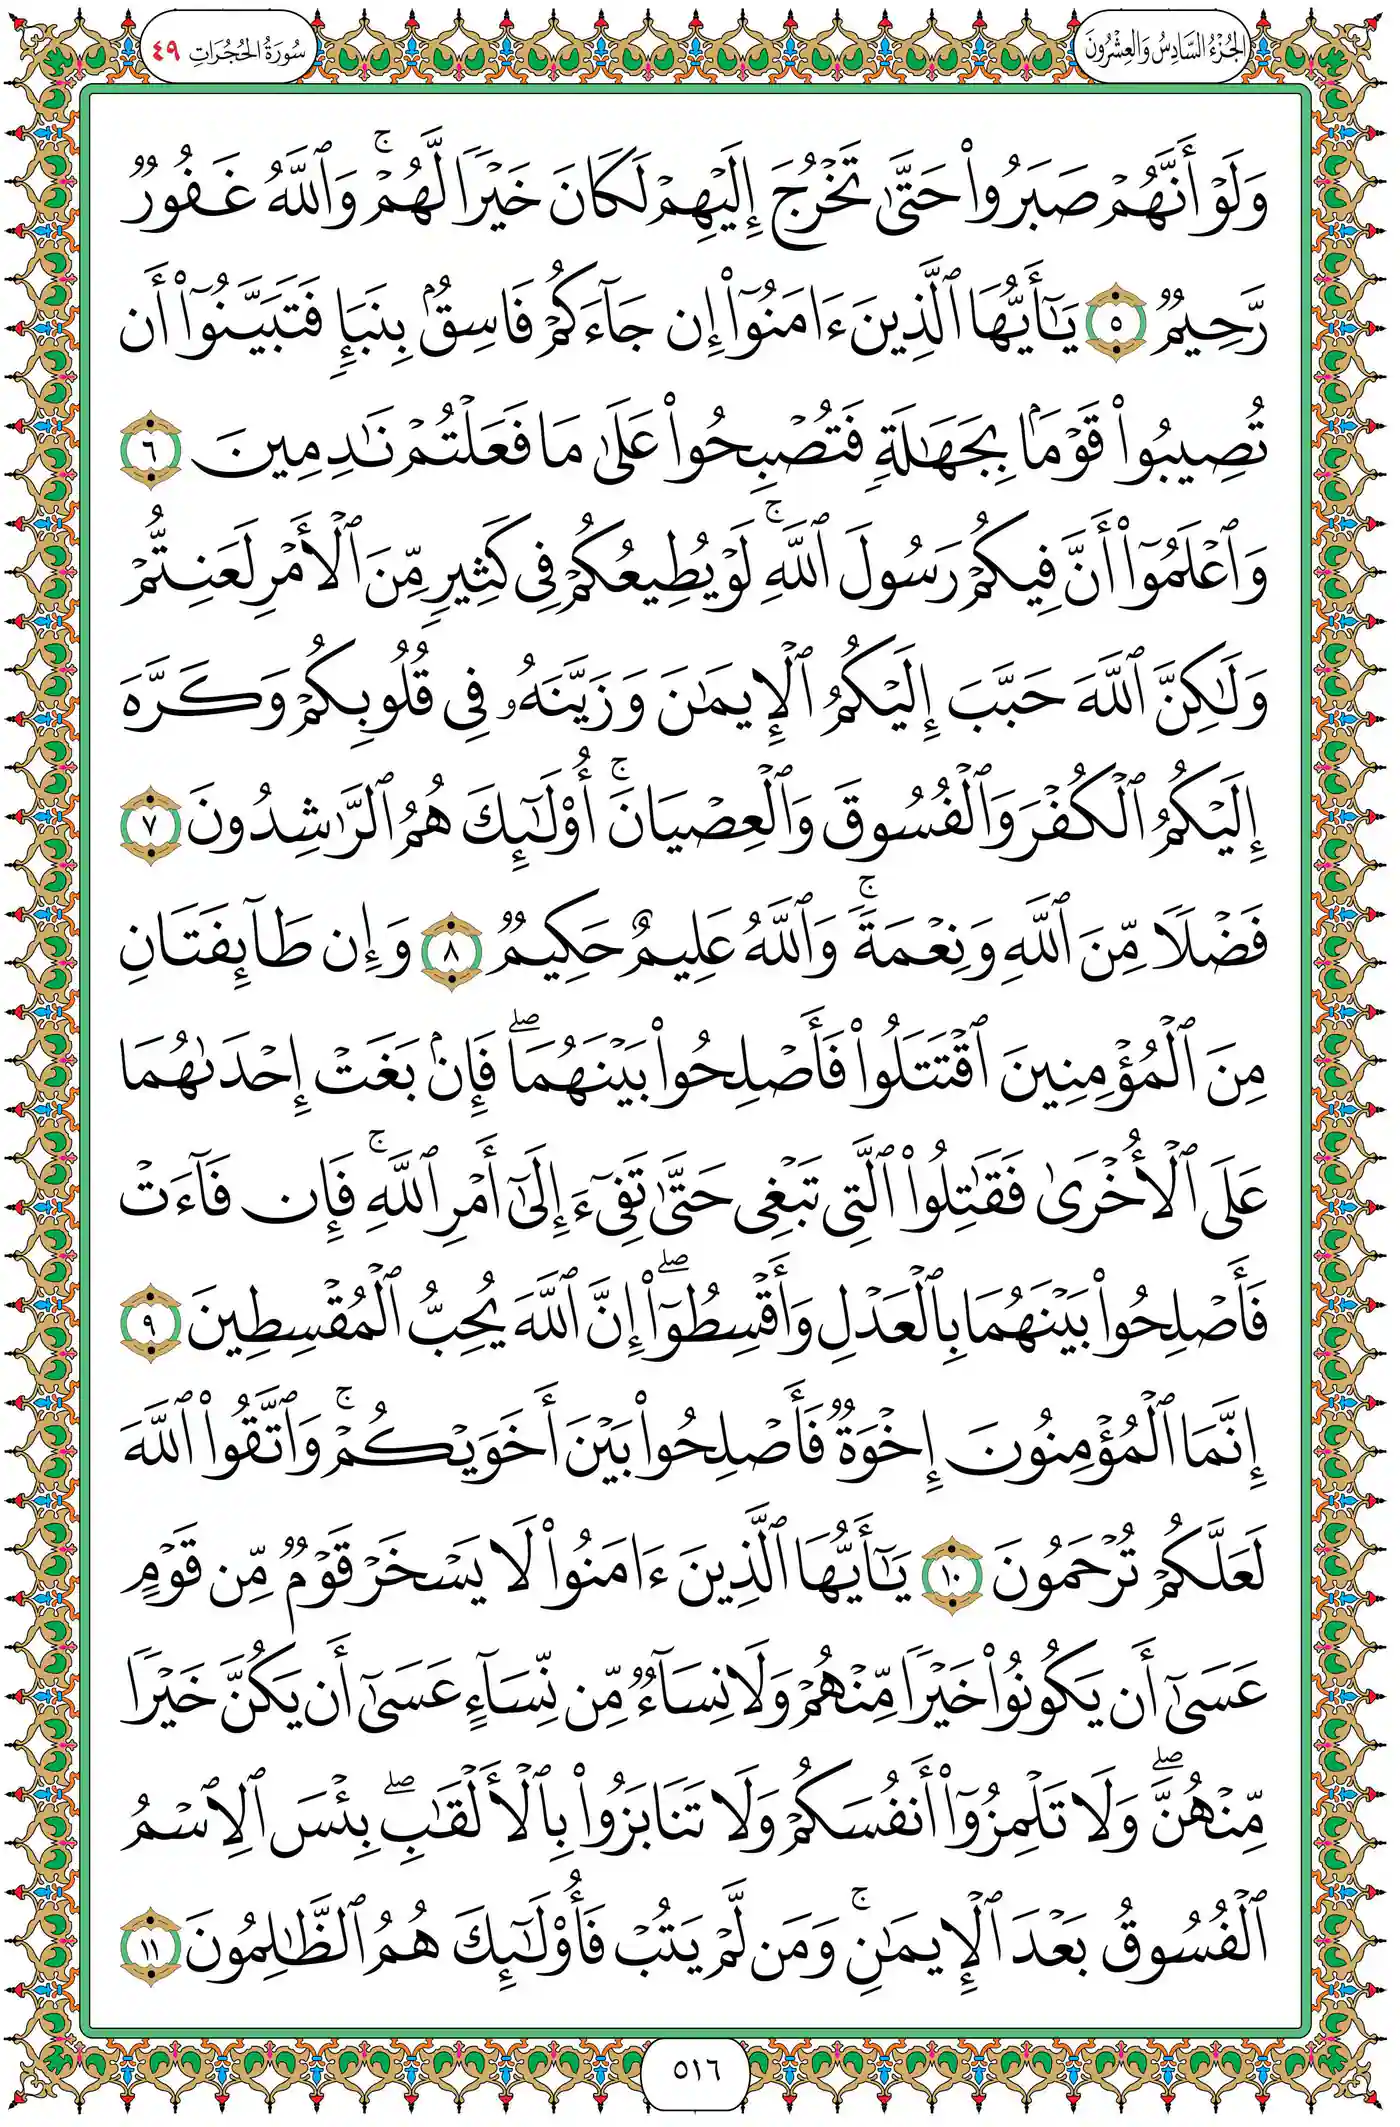 الجُزْءُ السَّادِسُ وَالعِشْرُونَ
سُورَةُ الحُجُرَاتِ ٤٩
وَلَوْ أَنَّهُمْ صَبَرُوا۟ حَتَّىٰ تَخْرُجَ إِلَيْهِمْ لَكَانَ خَيْرًا لَّهُمْ ۚ وَٱللَّهُ غَفُورٌ
رَّحِيمٌ ٥ يَـٰٓأَيُّهَا ٱلَّذِينَ ءَامَنُوٓا۟ إِن جَآءَكُمْ فَاسِقٌۢ بِنَبَإٍ فَتَبَيَّنُوٓا۟ أَن
تُصِيبُوا۟ قَوْمًۢا بِجَهَـٰلَةٍ فَتُصْبِحُوا۟ عَلَىٰ مَا فَعَلْتُمْ نَـٰدِمِينَ ٦
وَٱعْلَمُوٓا۟ أَنَّ فِيكُمْ رَسُولَ ٱللَّهِ ۚ لَوْ يُطِيعُكُمْ فِى كَثِيرٍ مِّنَ ٱلْأَمْرِ لَعَنِتُّمْ
وَلَـٰكِنَّ ٱللَّهَ حَبَّبَ إِلَيْكُمُ ٱلْإِيمَـٰنَ وَزَيَّنَهُۥ فِى قُلُوبِكُمْ وَكَرَّهَ
إِلَيْكُمُ ٱلْكُفْرَ وَٱلْفُسُوقَ وَٱلْعِصْيَانَ ۚ أُو۟لَـٰٓئِكَ هُمُ ٱلرَّٰشِدُونَ ٧
فَضْلًا مِّنَ ٱللَّهِ وَنِعْمَةً ۚ وَٱللَّهُ عَلِيمٌ حَكِيمٌ ٨ وَإِن طَآئِفَتَانِ
مِنَ ٱلْمُؤْمِنِينَ ٱقْتَتَلُوا۟ فَأَصْلِحُوا۟ بَيْنَهُمَا ۖ فَإِنۢ بَغَتْ إِحْدَىٰهُمَا
عَلَى ٱلْأُخْرَىٰ فَقَـٰتِلُوا۟ ٱلَّتِى تَبْغِى حَتَّىٰ تَفِىٓءَ إِلَىٰٓ أَمْرِ ٱللَّهِ ۚ فَإِن فَآءَتْ
فَأَصْلِحُوا۟ بَيْنَهُمَا بِٱلْعَدْلِ وَأَقْسِطُوٓا۟ ۖ إِنَّ ٱللَّهَ يُحِبُّ ٱلْمُقْسِطِينَ ٩
إِنَّمَا ٱلْمُؤْمِنُونَ إِخْوَةٌ فَأَصْلِحُوا۟ بَيْنَ أَخَوَيْكُمْ ۚ وَٱتَّقُوا۟ ٱللَّهَ
لَعَلَّكُمْ تُرْحَمُونَ ١٠ يَـٰٓأَيُّهَا ٱلَّذِينَ ءَامَنُوا۟ لَا يَسْخَرْ قَوْمٌ مِّن قَوْمٍ
عَسَىٰٓ أَن يَكُونُوا۟ خَيْرًا مِّنْهُمْ وَلَا نِسَآءٌ مِّن نِّسَآءٍ عَسَىٰٓ أَن يَكُنَّ خَيْرًا
مِّنْهُنَّ ۖ وَلَا تَلْمِزُوٓا۟ أَنفُسَكُمْ وَلَا تَنَابَزُوا۟ بِٱلْأَلْقَـٰبِ ۖ بِئْسَ ٱلِٱسْمُ
ٱلْفُسُوقُ بَعْدَ ٱلْإِيمَـٰنِ ۚ وَمَن لَّمْ يَتُبْ فَأُو۟لَـٰٓئِكَ هُمُ ٱلظَّـٰلِمُونَ ١١
٥١٦